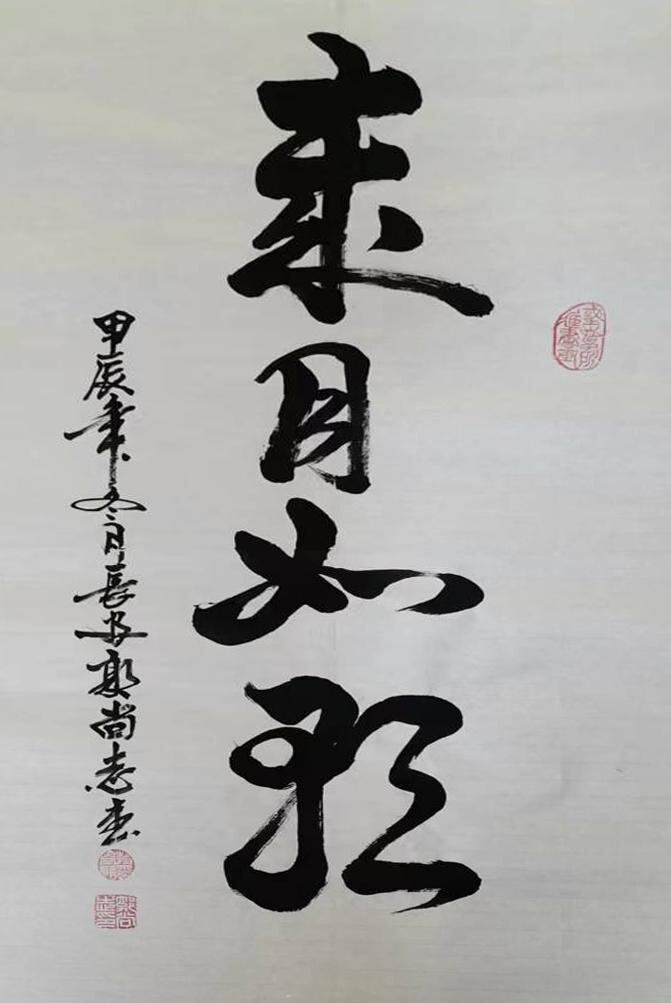 歲月如歌
甲辰年冬月長安郭尚志書